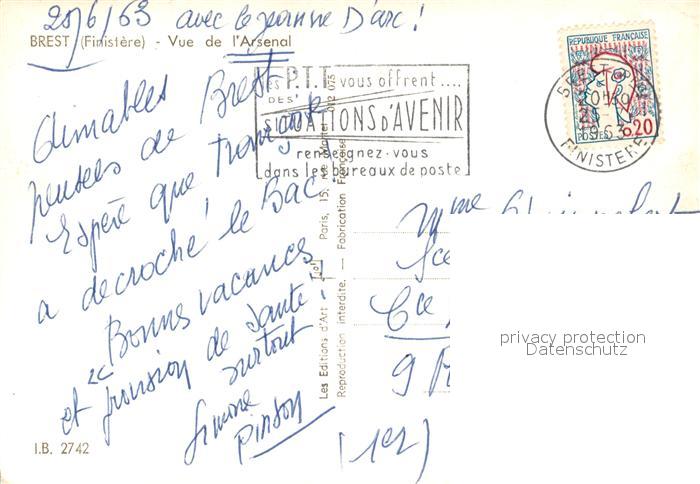 20/6/63 avec le Jeanne D'arc !
BREST (Finistère) - Vue de l'Arsenal
Aimables
pensées de Brest
Espère que
a décroché le Bac !
Bonnes vacances
et provision de santé
surtout
Simone
Pinson
I.B. 2742
Les P.T.T vous offrent....
DES
SITUATIONS D'AVENIR
renseignez-vous
dans les bureaux de poste
REPUBLIQUE FRANÇAISE
POSTES 0,20
BREST
1963
FINISTERE
Les Editions d'Art Paris, 15, rue Martel
Reproduction interdite. — Fabrication Française
Mme
Cte
9 R
(102)
privacy protection
Datenschutz